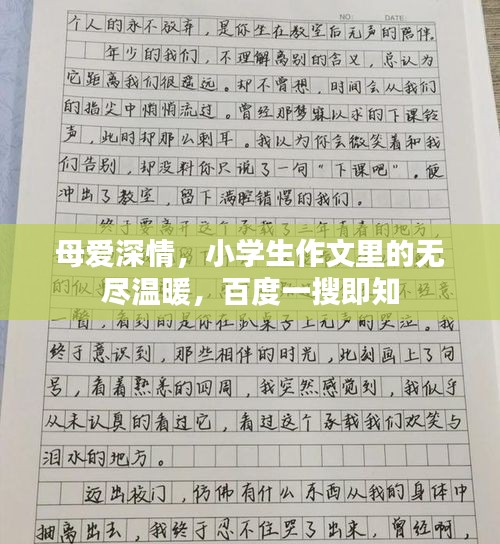 NO: DATE:
个人的永不放弃，是你坐在教室后无声的陪伴。
年少的我们，不理解离别的含义，总认为
它距离我们很遥远。却不曾想，时间会从我们
的指尖中悄悄流过。曾经那梦寐以求的下课铃
声，此时却那么刺耳。我以为你会微笑着和我
们告别，却没料你只说了一句“下课吧”。便
冲出了教室，留下满腔错愕的我们。
终于要离开这个承载了三年青春的地方，
母爱深情，小学生作文里的无
尽温暖，百度一搜即知
一瞥，看到的是你在趴桌子上无声的哭泣。我
终于意识到，那些相伴的时光，此刻画上了句
号，看着熟悉的四周，我突然感觉到，我似乎
从未认真的看过它，看过这个承载我们欢笑与
泪水的地方。
迈出校门，仿佛有什么东西从我的身体中
抽离出去，我终于忍不住哭了出来，曾经啊，